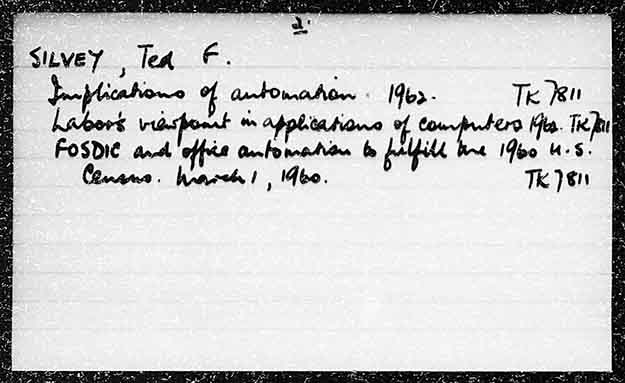 2.
SILVEY, Ted F.
Implications of automation. 1962. TK 7811
Labor's viewpoint in applications of computers 1960. TK 7811
FOSDIC and office automation to fulfill the 1960 U.S.
Census. March 1, 1960. TK 7811